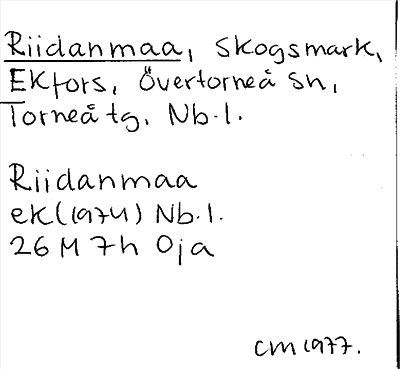 Riidanmaa, Skogsmark,
Ekfors, Övertorneå sn,
Torneå tg. Nb.l.
Riidanmaa
ek (1974) Nb.l.
26 M 7h Oja
CM 1977.